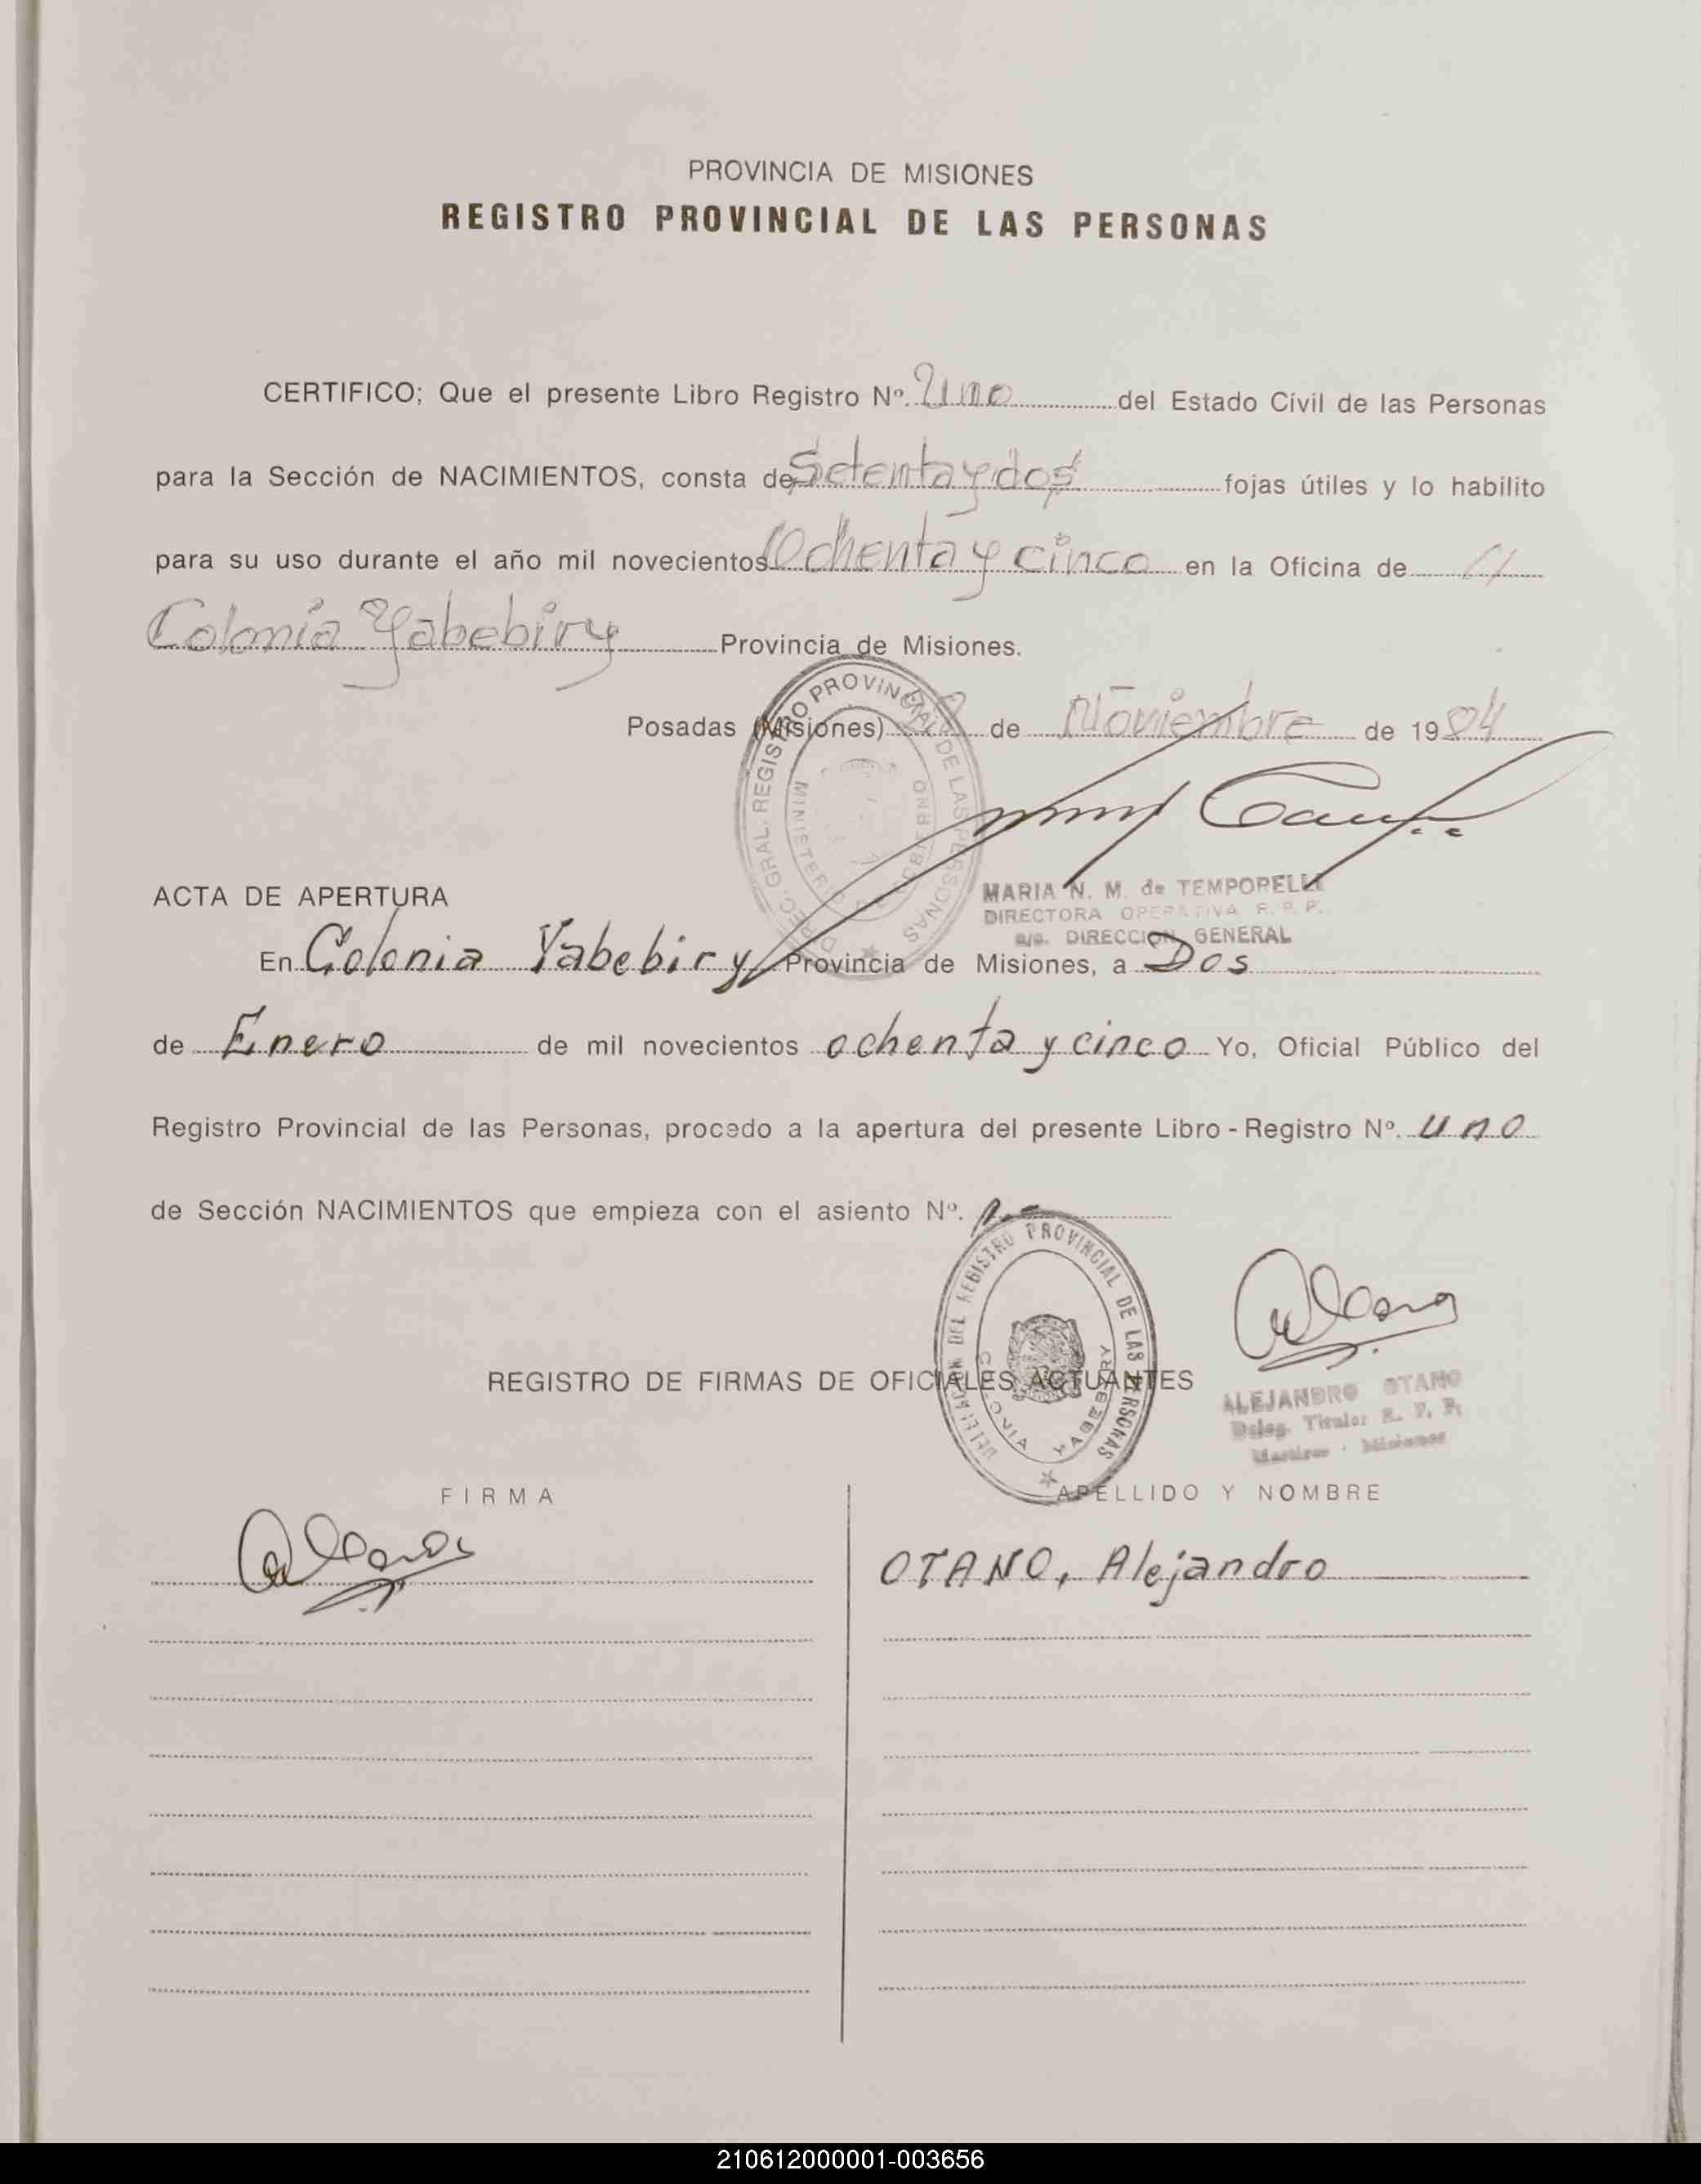 PROVINCIA DE MISIONES
REGISTRO PROVINCIAL DE LAS PERSONAS
CERTIFICO; Que el presente Libro Registro Nº. Uno del Estado Civil de las Personas
para la Sección de NACIMIENTOS, consta de Setenta y dos fojas útiles y lo habilito
para su uso durante el año mil novecientos Ochenta y cinco en la Oficina de
Colonia Yabebiry Provincia de Misiones.
Posadas (Misiones) de Noviembre de 1984
DIREC. GRAL. REGISTRO PROVINCIAL DE LAS PERSONAS
MINISTERIO DE GOBIERNO
MARIA N. M. de TEMPORELLI
DIRECTORA OPERATIVA R. P. P.
a/c. DIRECCION GENERAL
ACTA DE APERTURA
En Colonia Yabebiry Provincia de Misiones, a Dos
de Enero de mil novecientos ochenta y cinco Yo, Oficial Público del
Registro Provincial de las Personas, procedo a la apertura del presente Libro - Registro Nº. uno
de Sección NACIMIENTOS que empieza con el asiento Nº. 1.-
DELEGACION DEL REGISTRO PROVINCIAL DE LAS PERSONAS
COLONIA YABEBIRY
ALEJANDRO OTANO
Deleg. Titular R. P. P.
Misiones
REGISTRO DE FIRMAS DE OFICIALES ACTUANTES
FIRMA APELLIDO Y NOMBRE
OTANO, Alejandro
210612000001-003656